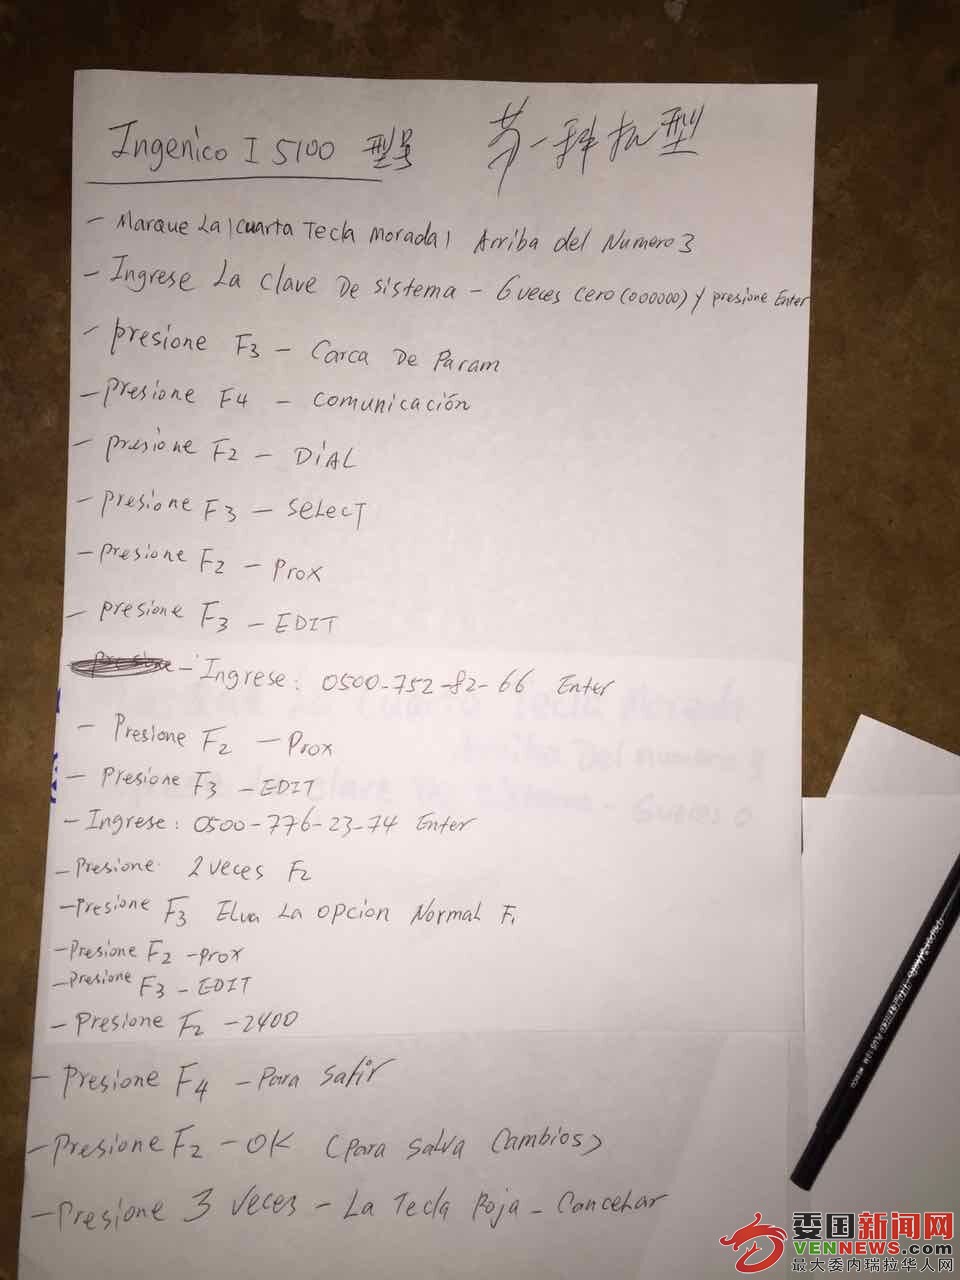 Ingenico I 5100 型号 第一种机型
- Marque La (cuarta Tecla morada) Arriba del Numero 3
- Ingrese La Clave De sistema - 6 veces cero (000000) y presione Enter
- presione F3 - Carca De Param
- Presione F4 - comunicación
- presione F2 - DiAL
- presione F3 - SelecT
- presione F2 - Prox
- presione F3 - EDIT
- Ingrese: 0500-752-82-66 Enter
- Presione F2 - Prox
- Presione F3 - EDIT
- Ingrese: 0500-776-23-74 Enter
- Presione 2 veces F2
- Presione F3 Elva La opcion Normal F1
- Presione F2 - prox
- Presione F3 - EDIT
- Presione F2 - 2400
- Presione F4 - Para Salir
- Presione F2 - OK (Para Salva Cambios)
- Presione 3 Veces - La Tecla Roja - Cancelar
委国新闻网
VENNEWS.com
最大委内瑞拉华人网